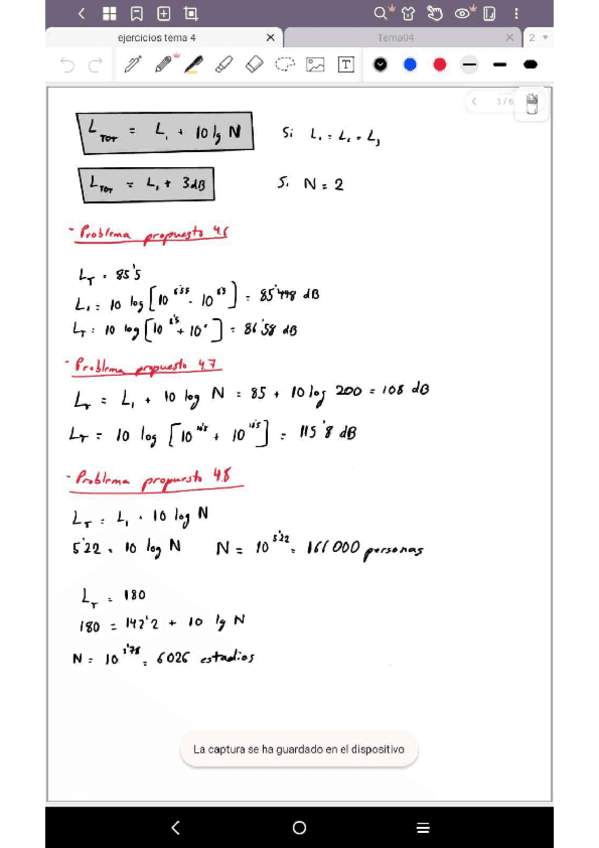 ejercicios tema 4
Tema04
2
3/6
L_TOT = L₁ + 10 lg N Si L₁ = L₂ = L₃
L_TOT = L₁ + 3dB Si N = 2
- Problema propuesto 4.6
L_T = 85'5
= 85'498 dB
= 86'58 dB
- Problema propuesto 4.7
L_T = L₁ + 10 log N = 85 + 10 log 200 = 108 dB
= 115'8 dB
- Problema propuesto 4.8
L_T = L₁ + 10 log N
5'22 = 10 log N N = 10^5'22 = 166000 personas
L_T = 180
180 = 142'2 + 10 lg N
N = 10^3'78 = 6026 estadios
La captura se ha guardado en el dispositivo